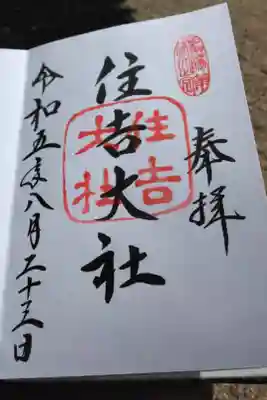 奉拝
住吉大社
住吉
大社
令和五年八月二十三日